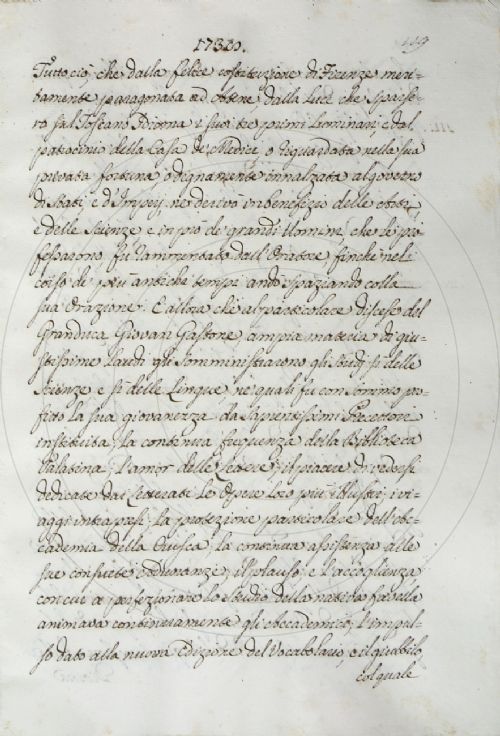 1732.
Tutto ciò, che dalla felice costituzione di Firenze meri-
tamente paragonata ad Atene dalla Luce che sparse-
ro sul Toscano Idioma i suoi tre primi Luminari, e dal
patrocinio della Casa de Medici, o riguardata nella sua
privata fortuna o degnamente innalzata al governo
di Stati, e d'Imperj, ne derivò in benefizio delle Arti,
e delle Scienze, e in pro de grandi Uomini, che le pro-
fessarono fù rammentato dall'Oratore finchè nel
corso de più antichi tempi andò spaziando colla
sua Orazione. E allora che al particolare discese del
Granduca Giovan Gastone, ampia materia di giu-
stissime laudi gli somministrarono gli Studj sì delle
Scienze e sì delle Lingue, ne quali fu con sommo pro-
fitto la sua giovanezza da sapientissimi Precettori
instituita, la continua frequenza della Biblioteca
Palatina, l'amor delle Lettere, il piacere di vedersi
dedicate dai Letterati le Opere loro più illustri, i vi-
aggi intrapresi, la protezione particolare dell'Ac-
cademia della Crusca, la continua assistenza alle
sue consuete Adunanze, il plauso, e l'accoglienza
con cui a perfezionare lo studio della natia favella
animava continuamente gli Accademici, l'impul-
so dato alla nuova Edizione del Vocabolario, e il giubbilo,
col quale